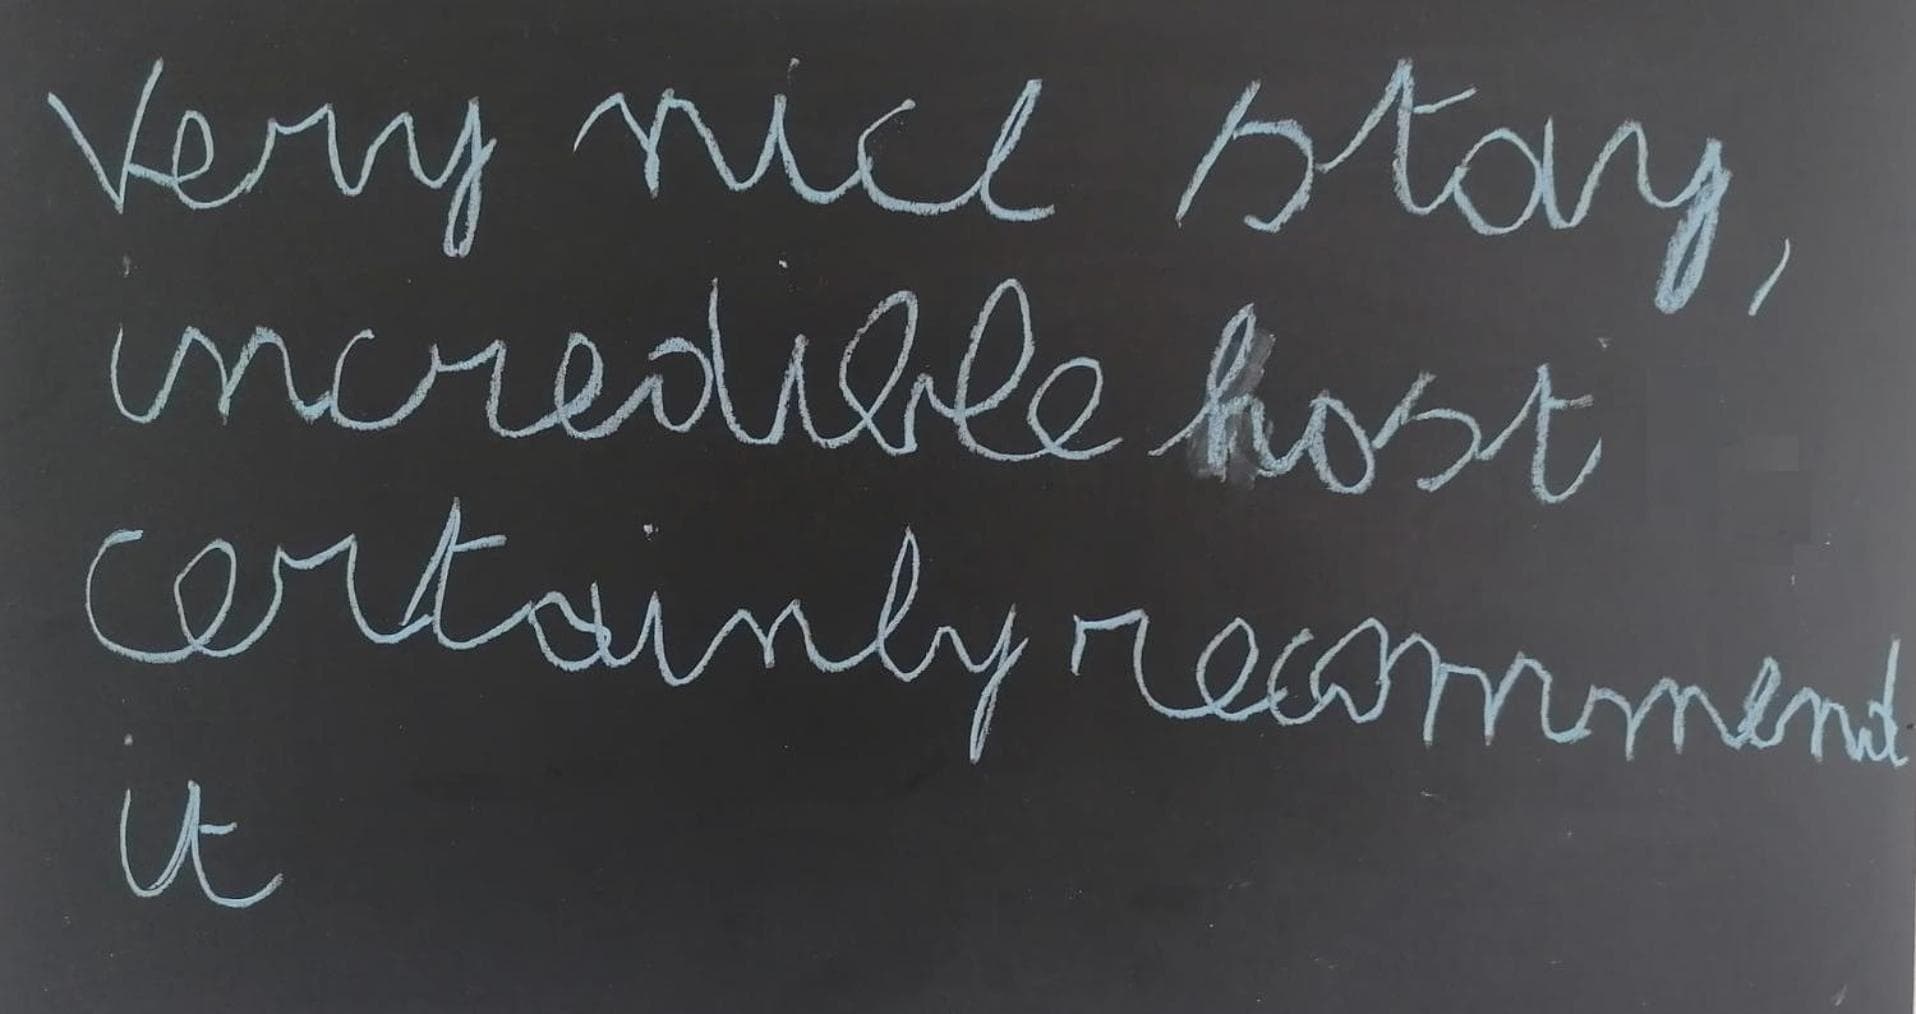 Very nice stay,
incredible host
certainly recommend
it